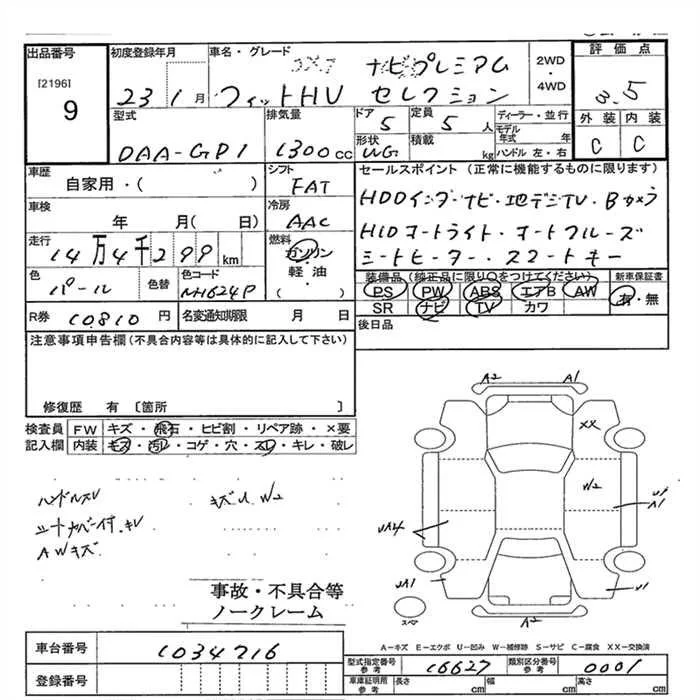 出品番号
[2196]
9
初度登録年月
23 1 月
車名・グレード
ナビプレミアム
フィットHV セレクション
2WD・4WD
評価点
3.5
外装 内装
C C
型式
DAA-GP1
排気量
1300 cc
ドア
5
定員
5 人
形状
WG
積載
kg
ディーラー・並行
モデル年式 年
ハンドル 左・右
車歴
自家用・( )
シフト
FAT
車検
年 月( 日)
冷房
AAC
走行
14万4千299 km
燃料
ガソリン
軽・油
( )
色
パール
色替
色コード
NH624P
R券 10.810 円
名変通知期限 月 日
セールスポイント (正常に機能するものに限ります)
HDDインターナビ・地デジTV・Bカメラ
HIDオートライト・オートクルーズ
シートヒーター・スマートキー
装備品 (純正品に限り○をつけてください)
新車保証書
PS PW ABS エアB AW
有・無
SR ナビ TV カワ
後日品
注意事項申告欄(不具合内容等は具体的に記入して下さい)
修復歴 有 〔箇所 〕
検査員記入欄
FW キズ・飛石・ヒビ割・リペア跡・×要
内装 キズ・汚レ・コゲ・穴・スレ・キレ・破レ
ハンドルスレ
キズU W2
AWキズ
事故・不具合等
ノークレーム
A2 A1
XX
W2
A1
UA4
UA1
U1
A2 A1
スペア
A-キズ E-エクボ U-凹み W-補修跡 S-サビ C-腐食 XX-交換済
車台番号
1034716
登録番号
型式指定番号 参考
16627
類別区分番号 参考
0001
車庫証明用 参考
長さ cm
幅 cm
高さ cm